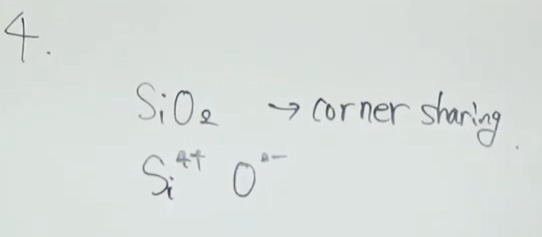 4.
SiO₂ → corner sharing.
Si⁴⁺ O²⁻